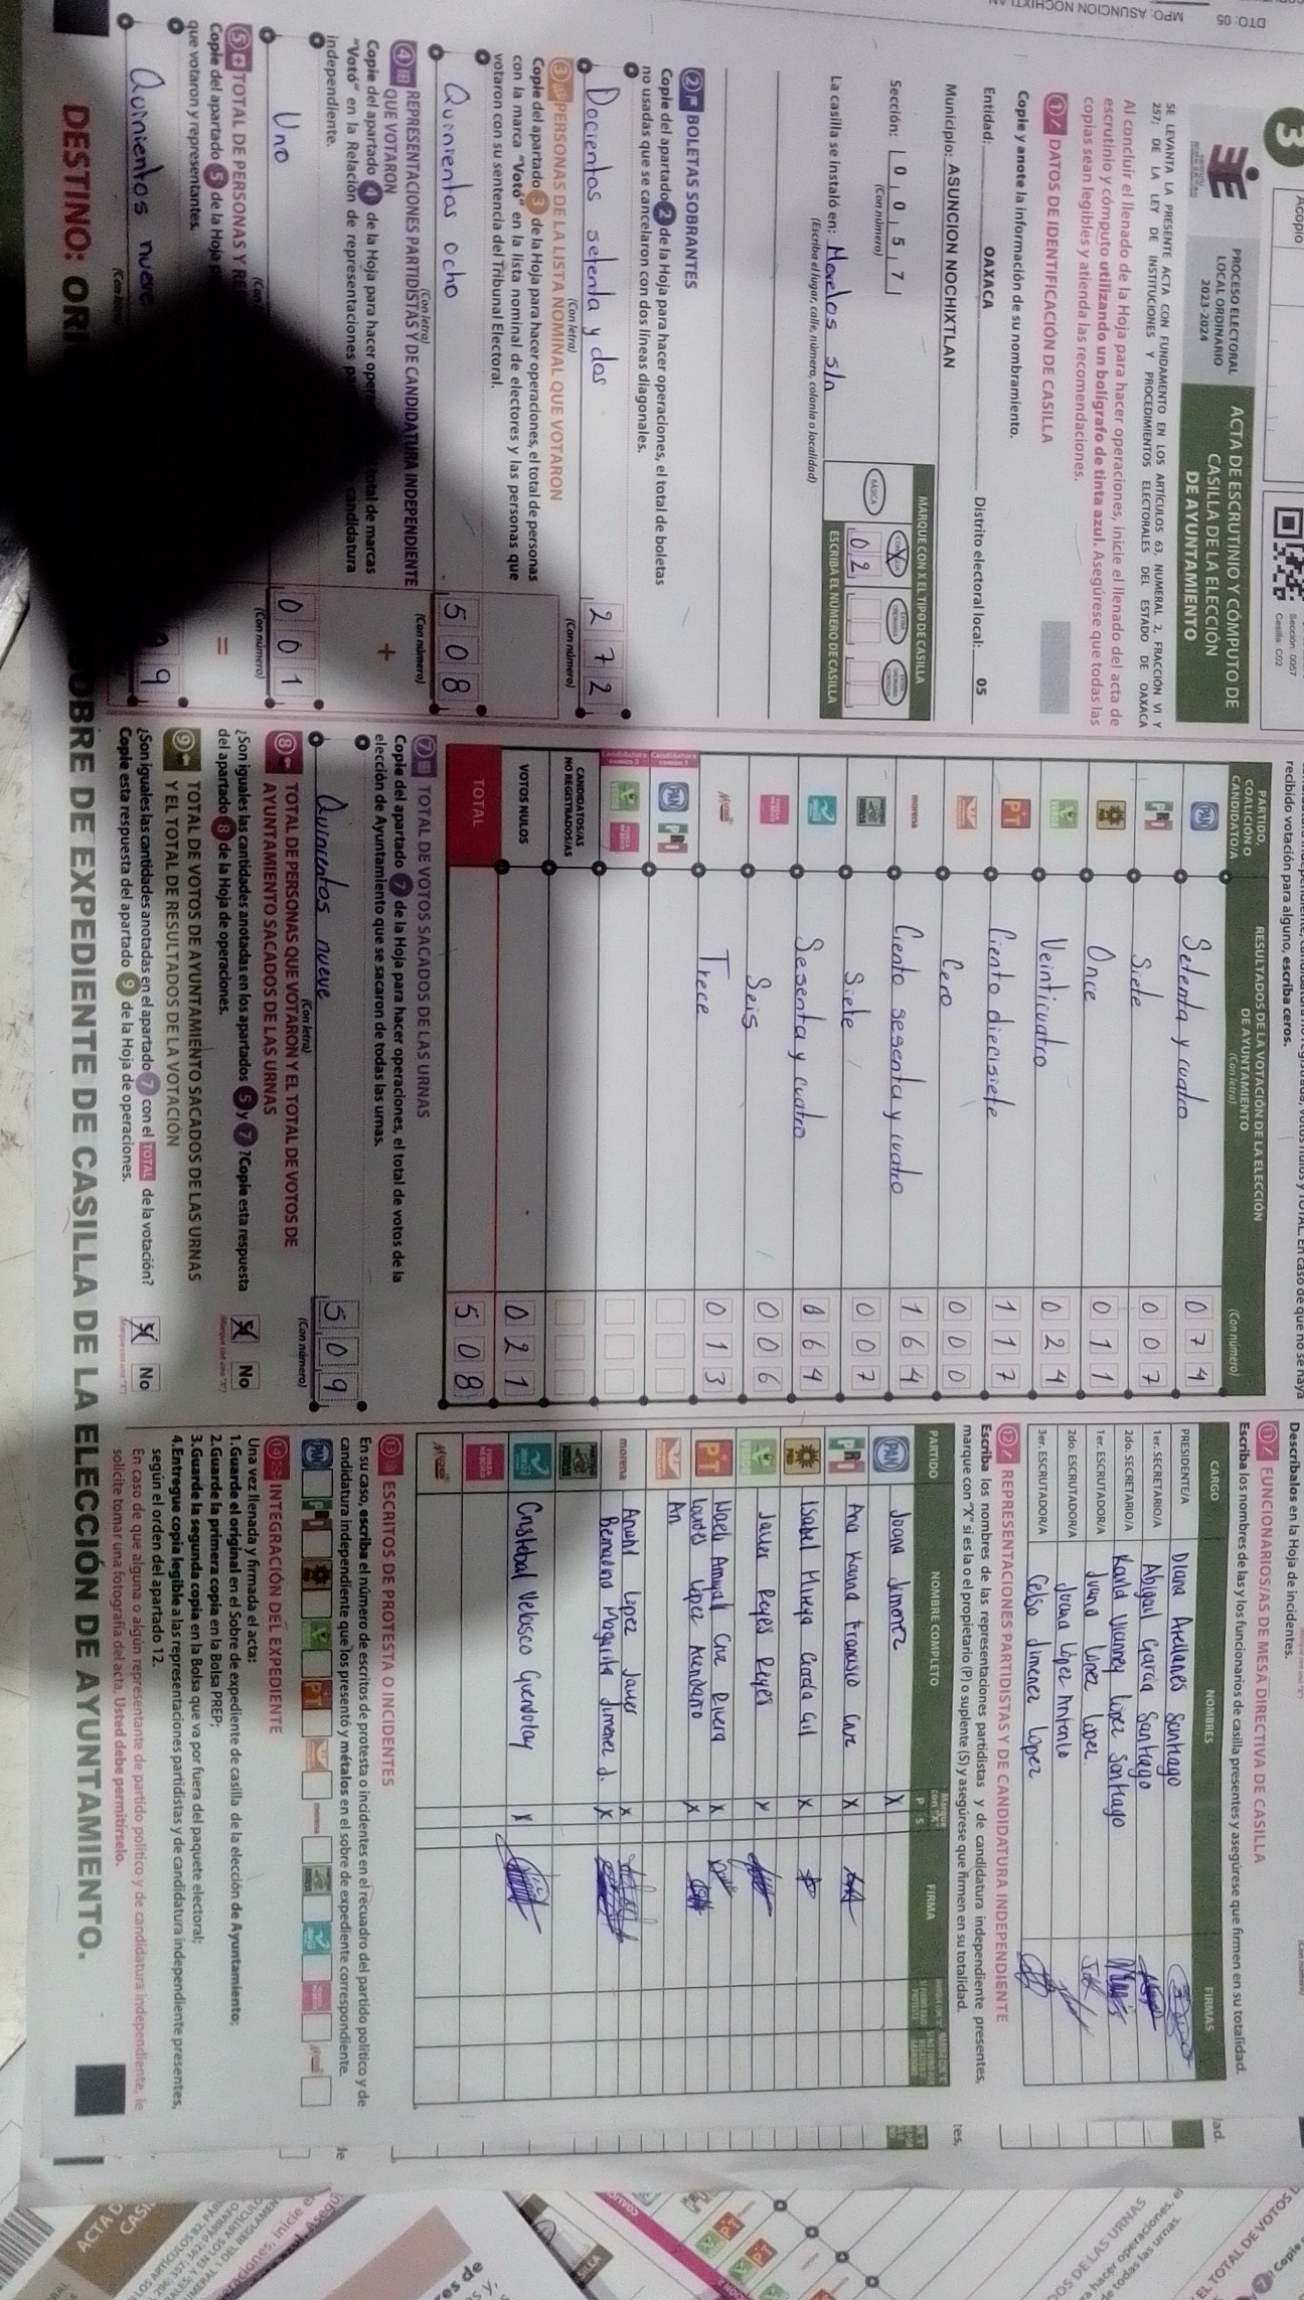 3
Acopio
Sección: 0057
Casilla: C02
DTO: 05
MPO: ASUNCION NOCHIXTLAN
PROCESO ELECTORAL
LOCAL ORDINARIO
2023-2024
ACTA DE ESCRUTINIO Y CÓMPUTO DE
CASILLA DE LA ELECCIÓN
DE AYUNTAMIENTO
SE LEVANTA LA PRESENTE ACTA CON FUNDAMENTO EN LOS ARTÍCULOS 63, NUMERAL 2, FRACCIÓN VI Y
257; DE LA LEY DE INSTITUCIONES Y PROCEDIMIENTOS ELECTORALES DEL ESTADO DE OAXACA
Al concluir el llenado de la Hoja para hacer operaciones, inicie el llenado del acta de
escrutinio y cómputo utilizando un bolígrafo de tinta azul. Asegúrese que todas las
copias sean legibles y atienda las recomendaciones.
1 DATOS DE IDENTIFICACIÓN DE CASILLA
Copie y anote la información de su nombramiento.
Entidad: OAXACA Distrito electoral local: 05
Municipio: ASUNCION NOCHIXTLAN
Sección: 0 0 5 7
(Con número)
MARQUE CON X EL TIPO DE CASILLA
BÁSICA
X
0 2
ESCRIBA EL NÚMERO DE CASILLA
La casilla se instaló en: Morelos s/n
(Escriba el lugar, calle, número, colonia o localidad)
2 BOLETAS SOBRANTES
Copie del apartado 2 de la Hoja para hacer operaciones, el total de boletas
no usadas que se cancelaron con dos líneas diagonales.
Docientos setenta y dos 2 7 2
(Con letra) (Con número)
3 PERSONAS DE LA LISTA NOMINAL QUE VOTARON
Copie del apartado 3 de la Hoja para hacer operaciones, el total de personas
con la marca "Votó" en la lista nominal de electores y las personas que
votaron con su sentencia del Tribunal Electoral.
Quinientos ocho 5 0 8
(Con letra) (Con número)
4 REPRESENTACIONES PARTIDISTAS Y DE CANDIDATURA INDEPENDIENTE
QUE VOTARON +
Copie del apartado 4 de la Hoja para hacer total de marcas
"Votó" en la Relación de representaciones candidatura
independiente.
Uno 0 0 1
(Con número)
5 TOTAL DE PERSONAS Y =
Copie del apartado 5 de la Hoja
que votaron y representantes.
Quinientos nueve 9
DESTINO: SOBRE DE EXPEDIENTE DE CASILLA DE LA ELECCIÓN DE AYUNTAMIENTO.
recibido votación para alguno, escriba ceros.
PARTIDO, COALICIÓN O CANDIDATO/A
RESULTADOS DE LA VOTACIÓN DE LA ELECCIÓN
DE AYUNTAMIENTO
(Con letra) (Con número)
PAN Setenta y cuatro 0 7 4
PRI Siete 0 0 7
Once 0 1 1
VERDE Veinticuatro 0 2 4
PT Ciento diecisiete 1 1 7
Cero 0 0 0
morena Ciento sesenta y cuatro 1 6 4
Siete 0 0 7
Sesenta y cuatro 0 6 4
Seis 0 0 6
Trece 0 1 3
Candidatura común 1 PAN PRI
Candidatura común 2
CANDIDATOS/AS
NO REGISTRADOS/AS
VOTOS NULOS 0 2 1
TOTAL 5 0 8
7 TOTAL DE VOTOS SACADOS DE LAS URNAS
Copie del apartado 7 de la Hoja para hacer operaciones, el total de votos de la
elección de Ayuntamiento que se sacaron de todas las urnas.
Quinientos nueve 5 0 9
(Con letra) (Con número)
8 TOTAL DE PERSONAS QUE VOTARON Y EL TOTAL DE VOTOS DE
AYUNTAMIENTO SACADOS DE LAS URNAS
¿Son iguales las cantidades anotadas en los apartados 5 y 7? Copie esta respuesta
del apartado 8 de la Hoja de operaciones.
No
9 TOTAL DE VOTOS DE AYUNTAMIENTO SACADOS DE LAS URNAS
Y EL TOTAL DE RESULTADOS DE LA VOTACIÓN
¿Son iguales las cantidades anotadas en el apartado 7 con el TOTAL de la votación?
Copie esta respuesta del apartado 9 de la Hoja de operaciones.
No
Descríbalos en la Hoja de incidentes.
11 FUNCIONARIOS/AS DE MESA DIRECTIVA DE CASILLA
Escriba los nombres de las y los funcionarios de casilla presentes y asegúrese que firmen en su totalidad.
CARGO NOMBRES FIRMAS
PRESIDENTE/A Diana Arellanes Santiago
1er. SECRETARIO/A Abigail García Santiago
2do. SECRETARIO/A Karla Vianney López Santiago
1er. ESCRUTADOR/A Juana López López
2do. ESCRUTADOR/A Juana López Antonio
3er. ESCRUTADOR/A Celso Jimenez Lopez
12 REPRESENTACIONES PARTIDISTAS Y DE CANDIDATURA INDEPENDIENTE
Escriba los nombres de las representaciones partidistas y de candidatura independiente presentes,
marque con "X" si es la o el propietario (P) o suplente (S) y asegúrese que firmen en su totalidad.
PARTIDO NOMBRE COMPLETO P S FIRMA
PAN Joana Jimenez X
PRI Ana Karina Francisco Cruz X
Isabel Huerga García Gil X
VERDE Javier Reyes Reyes X
PT Naeli Amayali Cruz Rivera X
Lourdes López Mendaro X
An
morena Anahi Lopez Javier X
Bernadino Margarito Jimenez J. X
Cristobal Velasco Guendolay X
13 ESCRITOS DE PROTESTA O INCIDENTES
En su caso, escriba el número de escritos de protesta o incidentes en el recuadro del partido político y de
candidatura independiente que los presentó y métalos en el sobre de expediente correspondiente.
14 INTEGRACIÓN DEL EXPEDIENTE
Una vez llenada y firmada el acta:
1.Guarde el original en el Sobre de expediente de casilla de la elección de Ayuntamiento;
2.Guarde la primera copia en la Bolsa PREP;
3.Guarde la segunda copia en la Bolsa que va por fuera del paquete electoral;
4.Entregue copia legible a las representaciones partidistas y de candidatura independiente presentes,
según el orden del apartado 12.
En caso de que alguna o algún representante de partido político y de candidatura independiente, le
solicite tomar una fotografía del acta, Usted debe permitírselo.